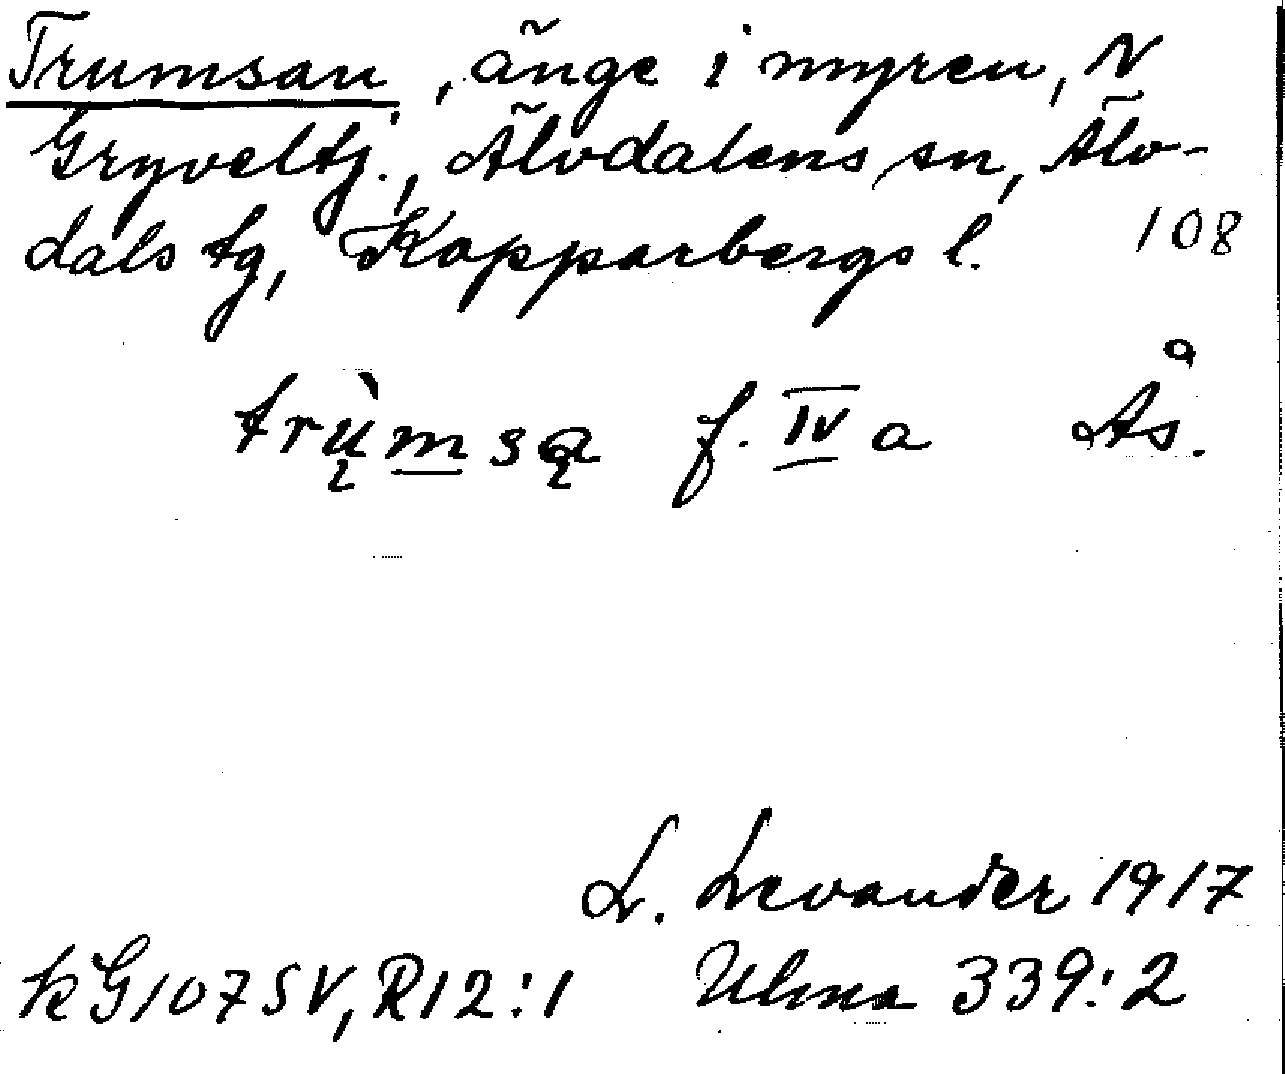 Trumsan, änge i myren, N
Gryveltj., Älvdalens sn, Älv-
dals tg, Kopparbergs l. 108
trų̀m̲są f. IV a Ås.
L. Levander 1917
kG107SV, R12:1 Ulma 339:2